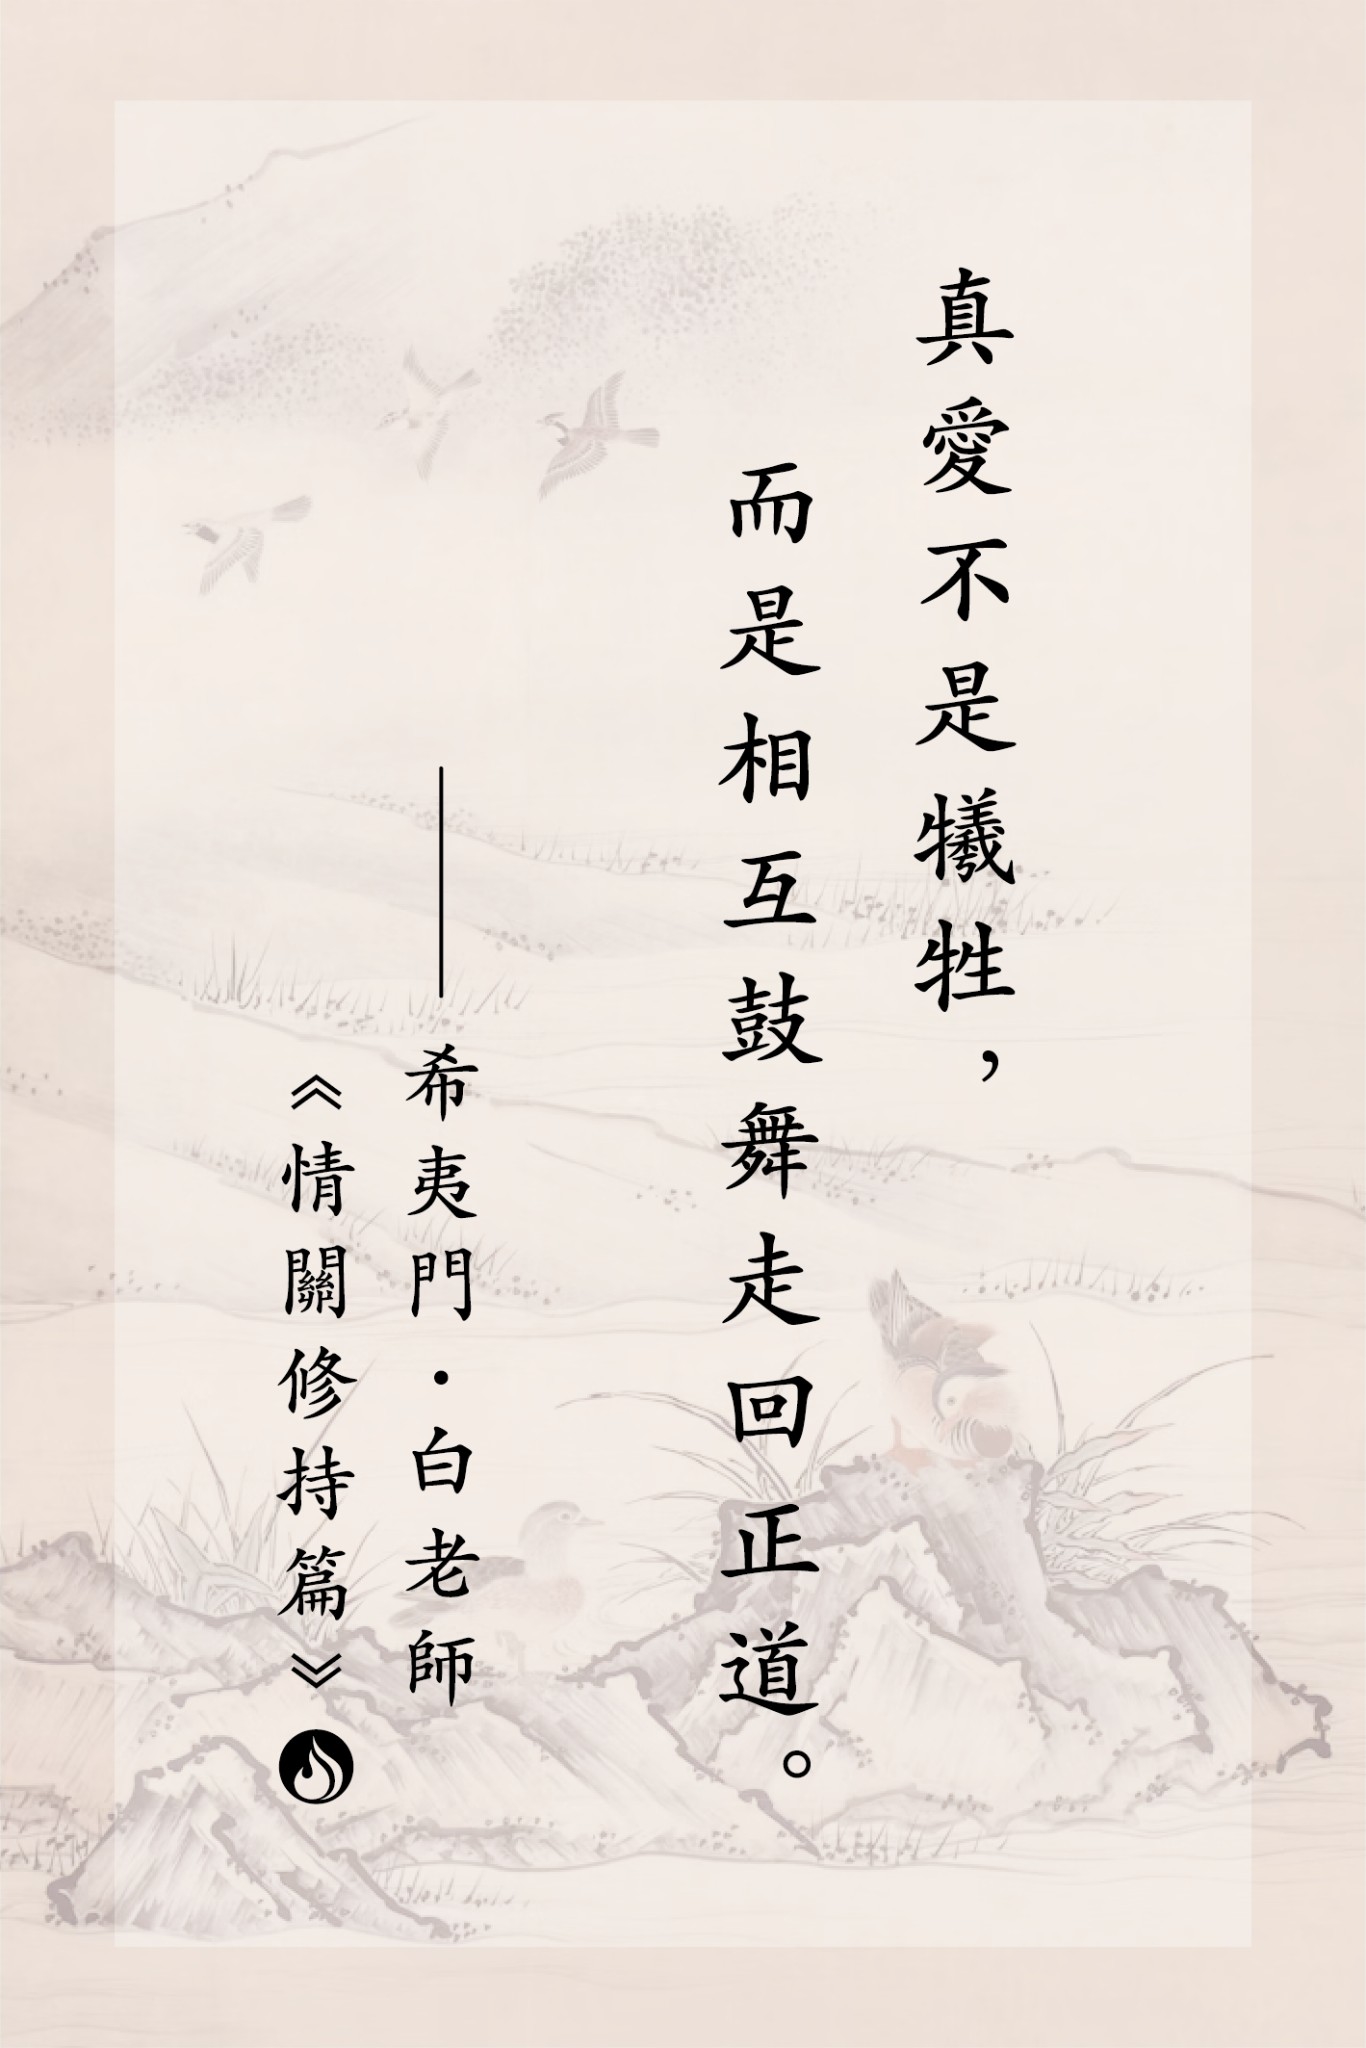 真愛不是犧牲，
而是相互鼓舞走回正道。
——希夷門·白老師
《情關修持篇》